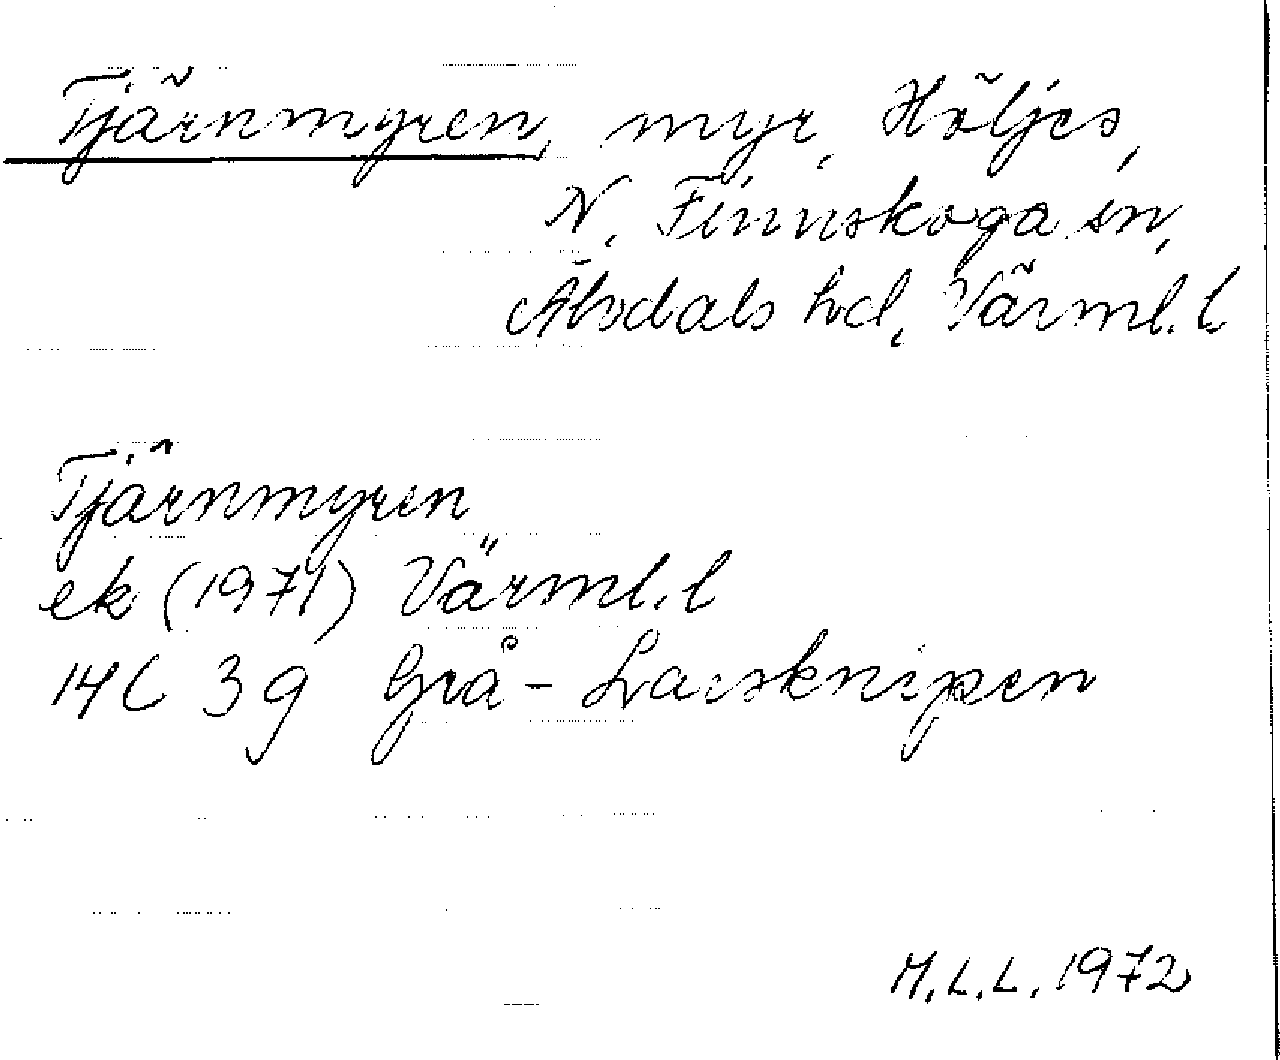 Tjärnmyren, myr, Höljes,
N. Finnskoga sn,
Älvdals hd, Värml. l
Tjärnmyren
ek (1971) Värml. l
14C 3g Grå-Larsknipen
M.L.L. 1972